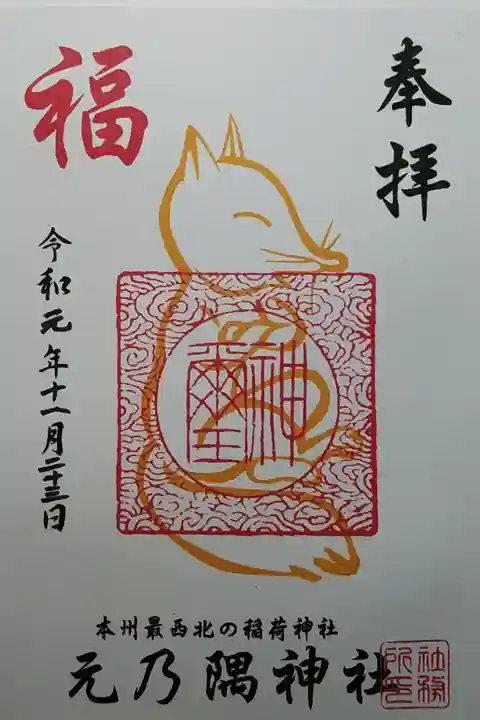 奉拝
福
令和元年十一月二十三日
神璽
本州最西北の稲荷神社
元乃隅神社
社務所之印